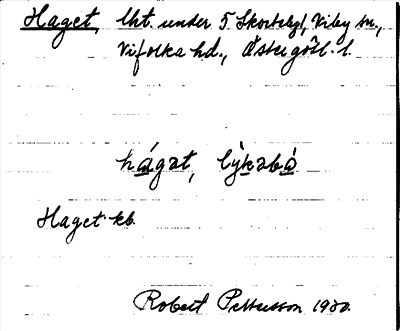 Haget, lht. under 5 Skorteby, Viby sn.,
Vifolka hd., Östergötl. l.
hágat, lýkabó
Haget kb.
Robert Pettersson 1930.